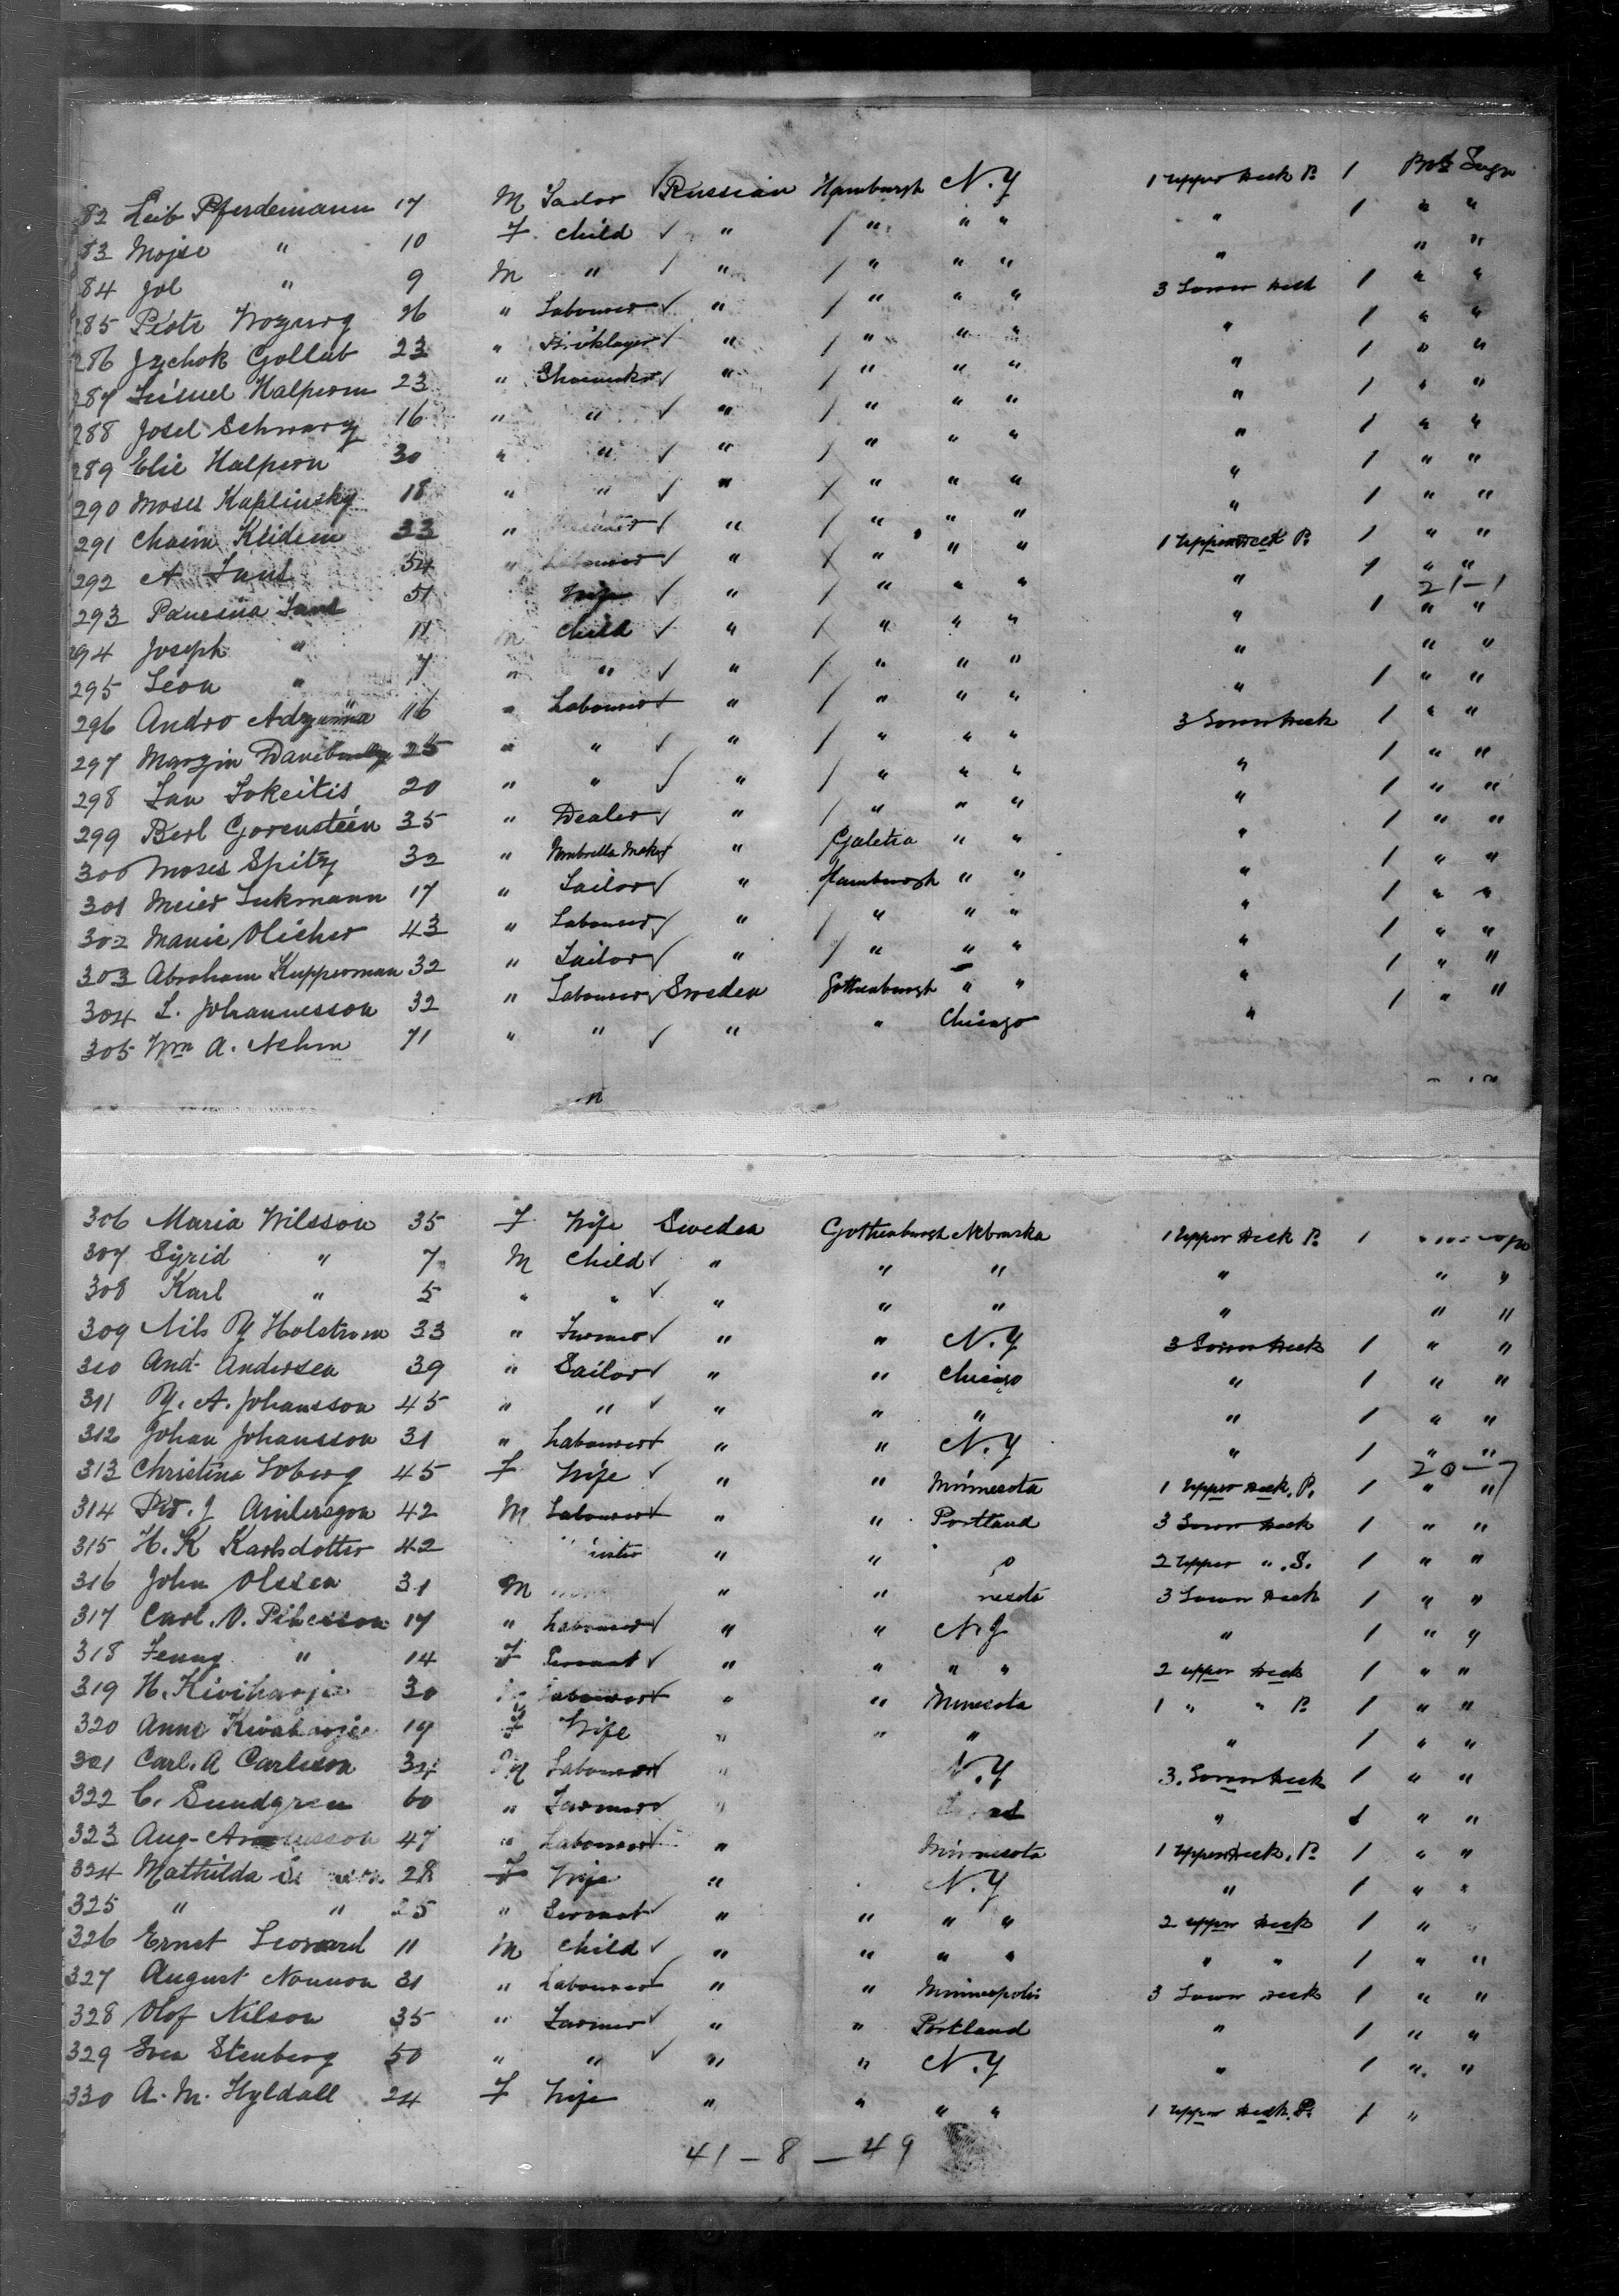 82 Leib Pferdemann 17 M Tailor √ Russian Hamburgh N.Y 1 Upper Deck P. 1 Prot Engn
83 Mojse " 10 F Child √ " / " " " " 1 " "
84 Jol " 9 M " / " / " " " " " "
285 Piotr 26 " Labourer √ " / " " " 3 Lower Deck 1 " "
286 Jzchok Gollub 23 " Bricklayer √ " / " " " " 1 " "
287 Halpern 23 " Shoemaker √ " / " " " " 1 " "
288 Josel Schwarz 16 " " √ " / " " " " 1 " "
289 Elie Halpern 30 " " √ " / " " " " 1 " "
290 Moses Kaplinsky 18 " " √ " / " " " " 1 " "
291 Chaim 33 " √ " / " " " " 1 " "
292 A 54 " Labourer √ " / " " " 1 Upper Deck P. 1 " "
293 51 Wife √ " / " " " " 1 21-1
294 Joseph " 11 m Child √ " / " " " " 1 " "
295 Leon " 7 " " √ " / " " " " " "
296 Andro 16 " Labourer √ " / " " " " 1 " "
297 25 " " √ " / " " " 3 Lower Deck 1 " "
298 Jokeitis 20 " " √ " / " " " " 1 " "
299 Berl Gorenstein 35 " Dealer √ " / " " " " 1 " "
300 Moses Spitz 32 " Umbrella Maker √ " / Galetia " " " 1 " "
301 Meier 17 " Tailor √ " Hamburgh " " " 1 " "
302 Olicher 43 " Labourer √ " / " " " " 1 " "
303 Abraham Kupperman 32 " Tailor √ " / " " " " 1 " "
304 L. Johannesson 32 " Labourer √ Sweden Gothenburgh " " " 1 " "
305 Wm A. Nehm 71 " " √ " " Chicago " 1 " "
306 Maria Nilsson 35 F Wife Sweden Gothenburgh Nebraska 1 Upper Deck P. 1
307 Sigrid " 7 M Child √ " " " " " "
308 Karl " 5 " " √ " " " " " "
309 Nils P Holstrom 33 " Farmer √ " " N.Y 3 Lower Deck 1 " "
310 And Andersen 39 " Sailor √ " " Chicago " 1 " "
311 P. A. Johansson 45 " " √ " " " " 1 " "
312 Johan Johansson 31 " Labourer √ " " N.Y " 1 " "
313 Christina 45 F Wife √ " " Minnesota 1 Upper Deck. P. 1 20-7
314 42 M Labourer √ " " Portland 3 Lower Deck 1 " "
315 H. K Karlsdotter 42 " " 2 Upper ". S. 1 " "
316 John Olssen 31 M " " 3 Lower Deck 1 " "
317 Carl. O. 17 " Labourer √ " " N.Y " 1 " "
318 Jenny " 14 F Servant √ " " " " 2 Upper Deck 1 " "
319 H. Kiviharju 30 M Labourer √ " " Minesota 1 " " P. 1 " "
320 Anna 19 F Wife " " " " 1 " "
321 Carl. A Carlson 34 M Labourer √ " N.Y 3. Lower Deck 1 " "
322 C. Sundgren 60 " Farmer √ " " 1 " "
323 Aug- 47 " Labourer √ " Minnesota 1 Upper Deck. P. 1 " "
324 Mathilda 28 F Wife " N.Y " 1 " "
325 " " 25 " Servant √ " " " " 2 Upper Deck 1 "
326 Ernst Leonard 11 M Child √ " " " " " " 1 " "
327 August Nonnon 31 " Labourer √ " " Minneapolis 3 Lower Deck 1 " "
328 Olof Nilson 35 " Farmer √ " " Portland " 1 " "
329 Sven Stenberg 50 " " √ " " N.Y " 1 " "
330 A. M. Hyldall 24 F Wife " " " " 1 Upper Deck. P. 1 "
41 - 8 - 49